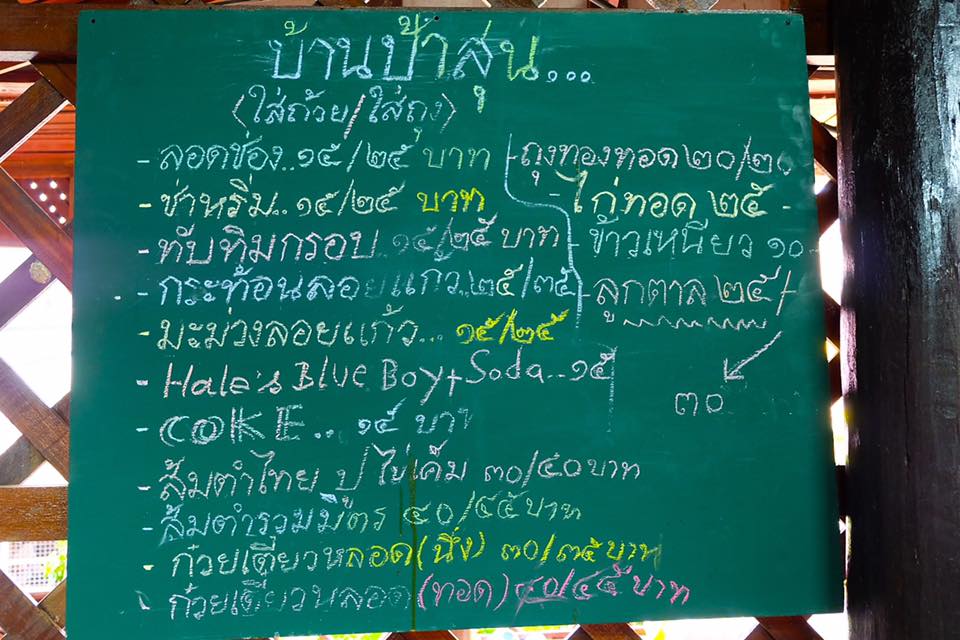 บ้านป้าสุน...
<ใส่ถ้วย/ใส่ถุง>
- ลอดช่อง..๑๕/๒๕ บาท
- ซ่าหริ่ม..๑๕/๒๕ บาท
- ทับทิมกรอบ ๑๕/๒๕ บาท
- กระท้อนลอยแก้ว..๒๕/๓๕
- มะม่วงลอยแก้ว... ๑๕/๒๕
- Hale's Blue Boy+Soda..๑๕
- COKE.. ๑๕ บาท
- ส้มตำไทย ปู ไข่เค็ม ๓๐/๔๐ บาท
- ส้มตำรวมมิตร ๔๐/๔๕ บาท
- ก๋วยเตี๋ยวหลอด(นึ่ง) ๓๐/๓๕ บาท
- ก๋วยเตี๋ยวหลอด(ทอด) ๔๐/๔๕ บาท
- ถุงทองทอด ๒๐/๒๐
- ไก่ทอด ๒๕ -
- ข้าวเหนียว ๑๐ -
- ลูกตาล ๒๕/
๓๐